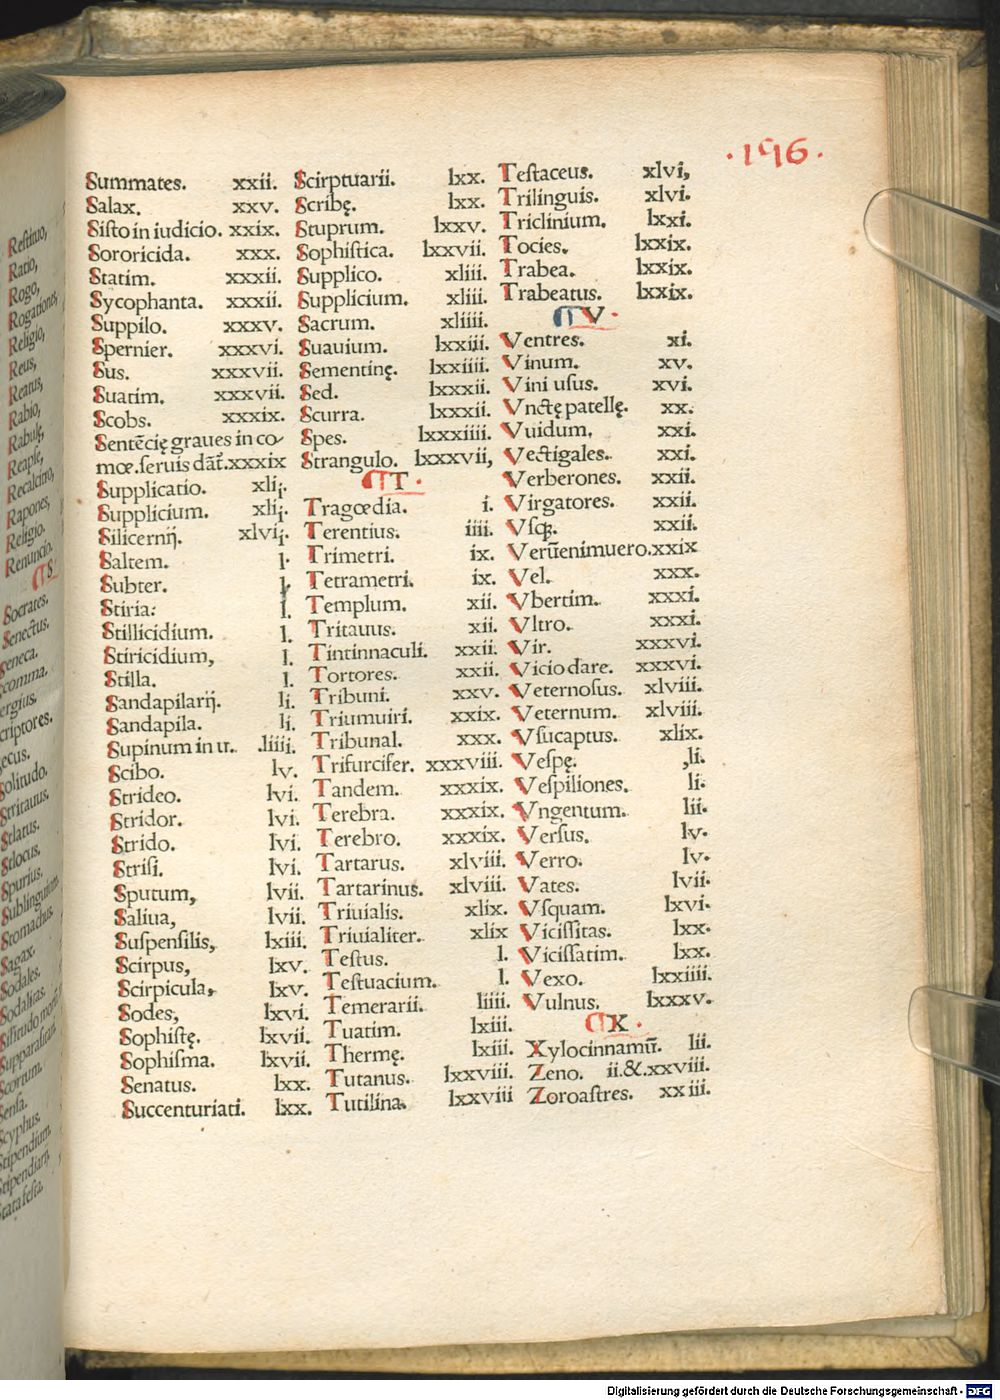 Restituo,
Ratio,
Rogo,
Rogationes,
Religio,
Reus,
Reatus,
Rabio,
Rabulę,
Reapſe,
Recalcitro,
Rapones,
Religio.
Renuncio.
¶S
Socrates.
Senectus.
Seneca.
comma.
ergius.
criptores.
ecus.
Solitudo.
Stritauus.
Stlatus.
Stlocus.
Spurius.
Stomachus.
Sagax.
Sodales.
Sodalitas.
Scortum.
Senſa.
Scyphus.
Stipendium.
Stipendiarij.
Stata feſta.
·196·
Summates. xxii.
Salax. xxv.
Siſto in iudicio. xxix.
Sororicida. xxx.
Statim. xxxii.
Sycophanta. xxxii.
Suppilo. xxxv.
Spernier. xxxvi.
Sus. xxxvii.
Suatim. xxxvii.
Scobs. xxxix.
Sentēcię graues in co-
mœ. ſeruis dāt̄. xxxix
Supplicatio. xlij.
Supplicium. xlij.
Silicernij. xlvij.
Saltem. l.
Subter. l.
Stiria: l.
Stillicidium. l.
Stiricidium, l.
Stilla. l.
Sandapilarij. li.
Sandapila. li.
Supinum in u. .liiii.
Scibo. lv.
Strideo. lvi.
Stridor. lvi.
Strido. lvi.
Striſi. lvi.
Sputum, lvii.
Saliua, lvii.
Suſpenſilis, lxiii.
Scirpus, lxv.
Scirpicula, lxv.
Sodes, lxvi.
Sophiſtę. lxvii.
Sophiſma. lxvii.
Senatus. lxx.
Succenturiati. lxx.
Scirptuarii. lxx.
Scribę. lxx.
Stuprum. lxxv.
Sophiſtica. lxxvii.
Supplico. xliii.
Supplicium. xliii.
Sacrum. xliiii.
Suauium. lxxiii.
Sementinę. lxxiiii.
Sed. lxxxii.
Scurra. lxxxii.
Spes. lxxxiiii.
Strangulo. lxxxvii,
¶T.
Tragœdia. i.
Terentius. iiii.
Trimetri. ix.
Tetrametri. ix.
Templum. xii.
Tritauus. xii.
Tintinnaculi. xxii.
Tortores. xxii.
Tribuni. xxv.
Triumuiri. xxix.
Tribunal. xxx.
Trifurcifer. xxxviii.
Tandem. xxxix.
Terebra. xxxix.
Terebro. xxxix.
Tartarus. xlviii.
Tartarinus. xlviii.
Triuialis. xlix.
Triuialiter. xlix
Teſtus. l.
Teſtuacium. l.
Temerarii. liiii.
Tuatim. lxiii.
Thermę. lxiii.
Tutanus. lxxviii.
Tutilina. lxxviii
Teſtaceus. xlvi,
Trilinguis. xlvi.
Triclinium. lxxi.
Tocies. lxxix.
Trabea. lxxix.
Trabeatus. lxxix.
¶V.
Ventres. xi.
Vinum. xv.
Vini uſus. xvi.
Vnctę patellę. xx.
Vuidum. xxi.
Vectigales. xxi.
Verberones. xxii.
Virgatores. xxii.
Vſqꝫ. xxii.
Verūenimuero. xxix
Vel. xxx.
Vbertim. xxxi.
Vltro. xxxi.
Vir. xxxvi.
Vicio dare. xxxvi.
Veternoſus. xlviii.
Veternum. xlviii.
Vſucaptus. xlix.
Veſpę. ,li.
Veſpiliones. li.
Vngentum. lii.
Verſus. lv.
Verro. lv.
Vates. lvii.
Vſquam. lxvi.
Viciſſitas. lxx.
Viciſſatim. lxx.
Vexo. lxxiiii.
Vulnus. lxxxv.
¶X.
Xylocinnamū. lii.
Zeno. ii.&.xxviii.
Zoroaſtres. xxiii.
Digitalisierung gefördert durch die Deutsche Forschungsgemeinschaft - DFG